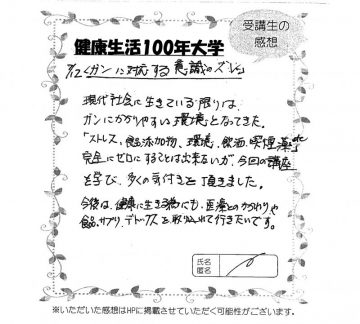 受講生の
感想
健康生活100年大学
ガンに対応する意識のズレ」
現代社会に生きている限りは、
ガンにかかりやすい環境となってきた。
「ストレス、食品添加物、環境、飲酒、喫煙、薬etc
完全にゼロにすることは出来ないが、今回の講座
を学び、多くの気付きを頂きました。
今後は、健康に生きる為にも、医療とのかかわりや
食品、サプリ、デトックスを取り入れて行きたいです。
氏名
匿名
※いただいた感想はHPに掲載させていただく可能性がございます。